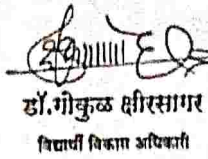 डॉ.गोकुळ क्षीरसागर
विद्यार्थी विकास अधिकारी